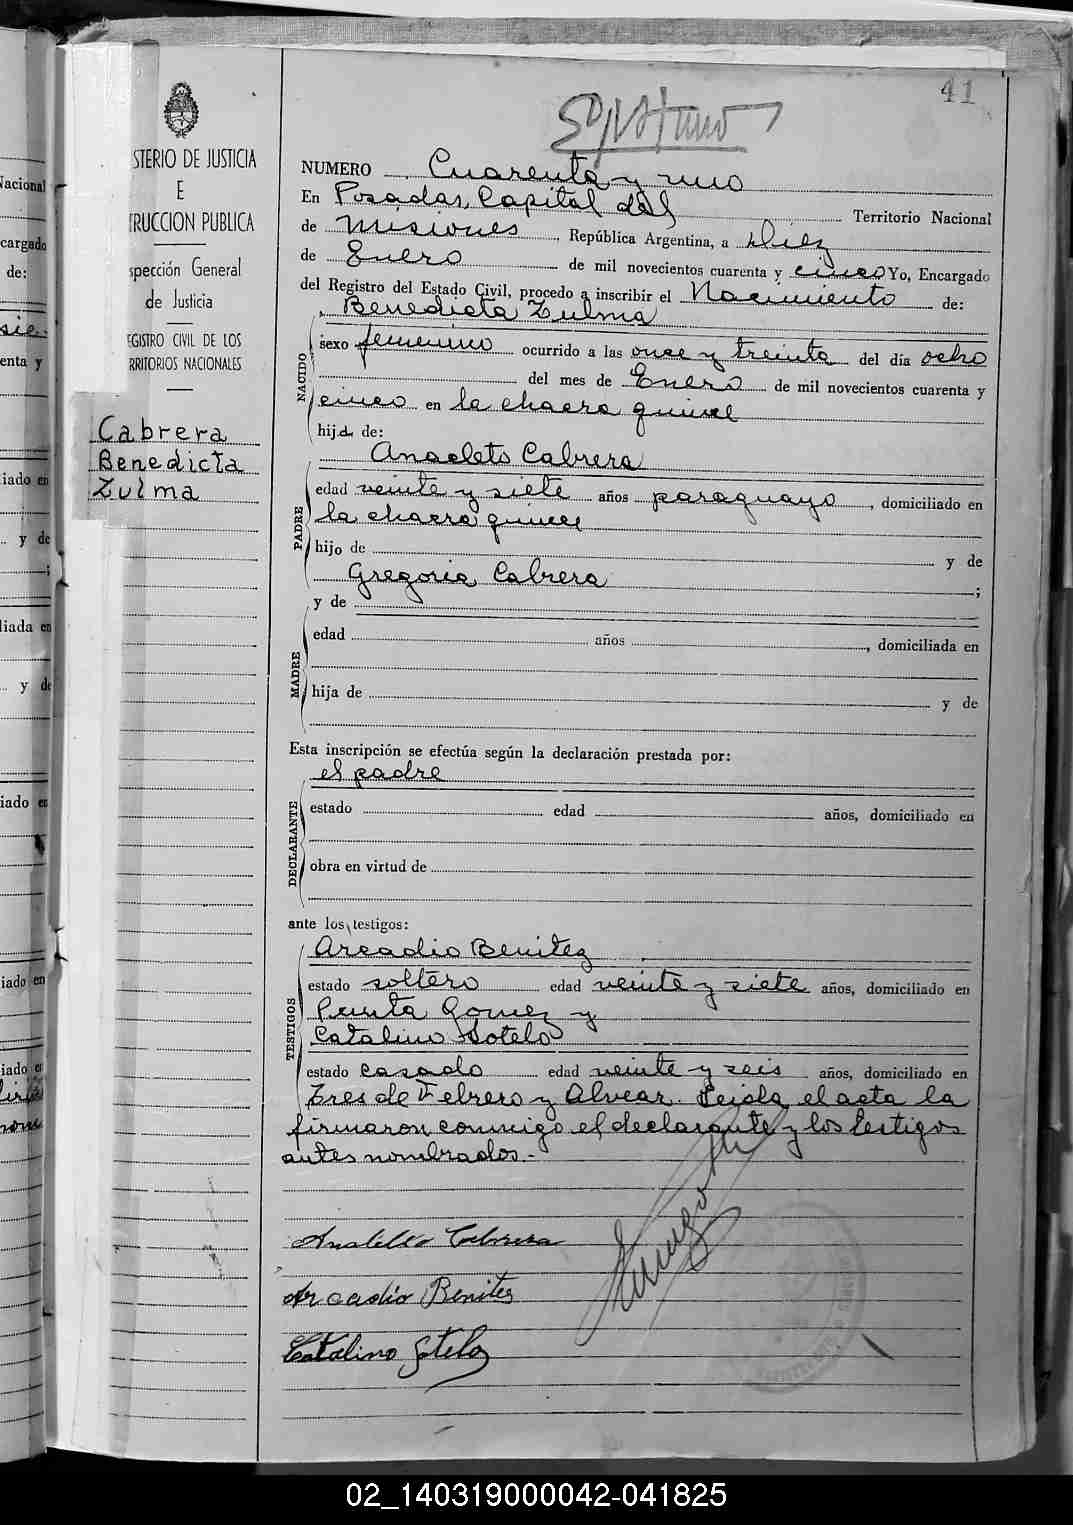 41
NUMERO Cuarenta y uno
En Posadas, Capital del Territorio Nacional
de Misiones República Argentina, a diez
de Enero de mil novecientos cuarenta y cinco Yo, Encargado
del Registro del Estado Civil, procedo a inscribir el Nacimiento de:
Benedicta Zulma
sexo femenino ocurrido a las once y treinta del día ocho
del mes de Enero de mil novecientos cuarenta y
cinco en la chacra quince
NACIDO
hija de:
Anacleto Cabrera
edad veinte y siete años paraguayo, domiciliado en
la chacra quince
PADRE
hijo de y de
Gregoria Cabrera ;
y de
edad años , domiciliada en
MADRE
hija de y de
Esta inscripción se efectúa según la declaración prestada por:
el padre
estado edad años, domiciliado en
DECLARANTE
obra en virtud de
ante los testigos:
Arcadio Benitez
estado soltero edad veinte y siete años, domiciliado en
Punta Gomez y
Catalino Sotelo
TESTIGOS
estado casado edad veinte y seis años, domiciliado en
Tres de Febrero y Alvear. Leida el acta la
firmaron conmigo el declarante y los testigos
antes nombrados.-
Anacleto Cabrera
Arcadio Benites
Catalino Sotelo
STERIO DE JUSTICIA
E
TRUCCION PUBLICA
spección General
de Justicia
EGISTRO CIVIL DE LOS
RRITORIOS NACIONALES
Cabrera
Benedicta
Zulma
Nacional
cargado
de:
enta y
iado en
y de
;
liada en
y de
iado en
iado en
iado en
02_140319000042-041825